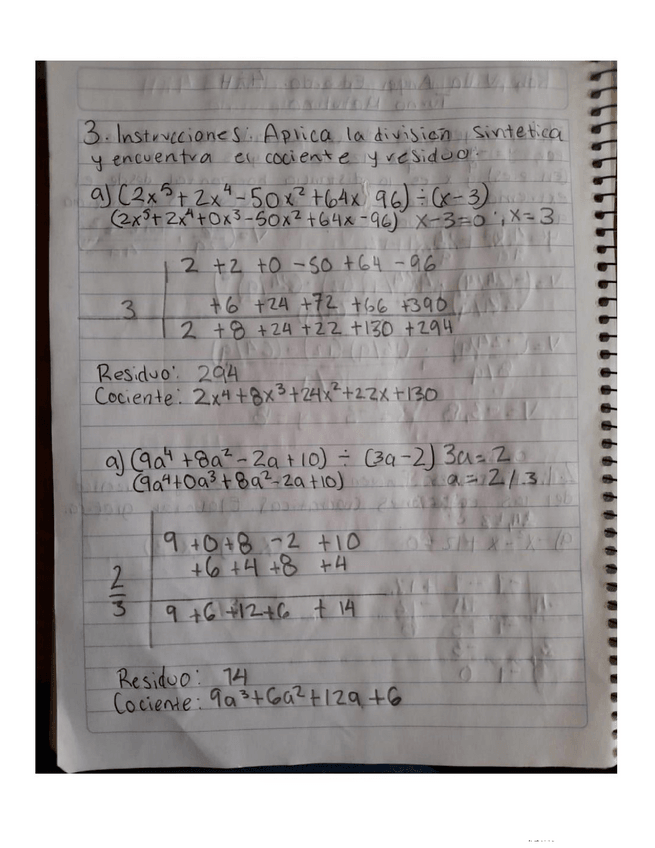 3. Instrucciones: Aplica la division sintetica
y encuentra el cociente y residuo.
a) (2x⁵ + 2x⁴ - 50x² + 64x 96) ÷ (x - 3)
(2x⁵ + 2x⁴ + 0x³ - 50x² + 64x - 96) x - 3 = 0 ; x = 3
2 +2 +0 -50 +64 -96
3 +6 +24 +72 +66 +390
2 +8 +24 +22 +130 +294
Residuo: 294
Cociente: 2x⁴ + 8x³ + 24x² + 22x + 130
a) (9a⁴ + 8a² - 2a + 10) ÷ (3a - 2) 3a = 2
(9a⁴ + 0a³ + 8a² - 2a + 10) a = 2/3
9 +0 +8 -2 +10
+6 +4 +8 +4
2/3 9 +6 +12 +6 + 14
Residuo: 14
Cociente: 9a³ + 6a² + 12a + 6